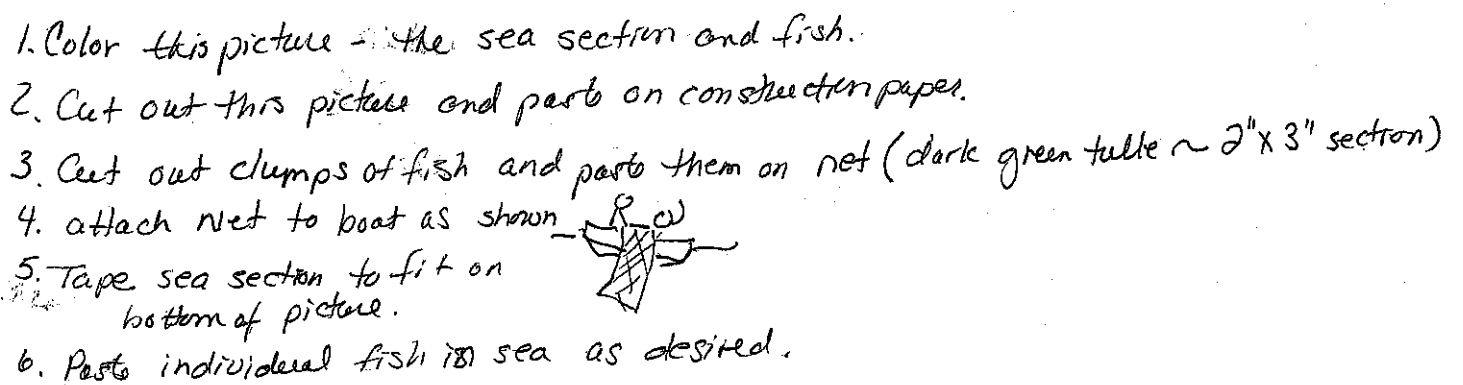 1. Color this picture - the sea section and fish.
2. Cut out this picture and paste on construction paper.
3. Cut out clumps of fish and paste them on net (dark green tulle ~ 2" x 3" section)
4. attach Net to boat as shown
5. Tape sea section to fit on
bottom of picture.
6. Paste individual fish in sea as desired.